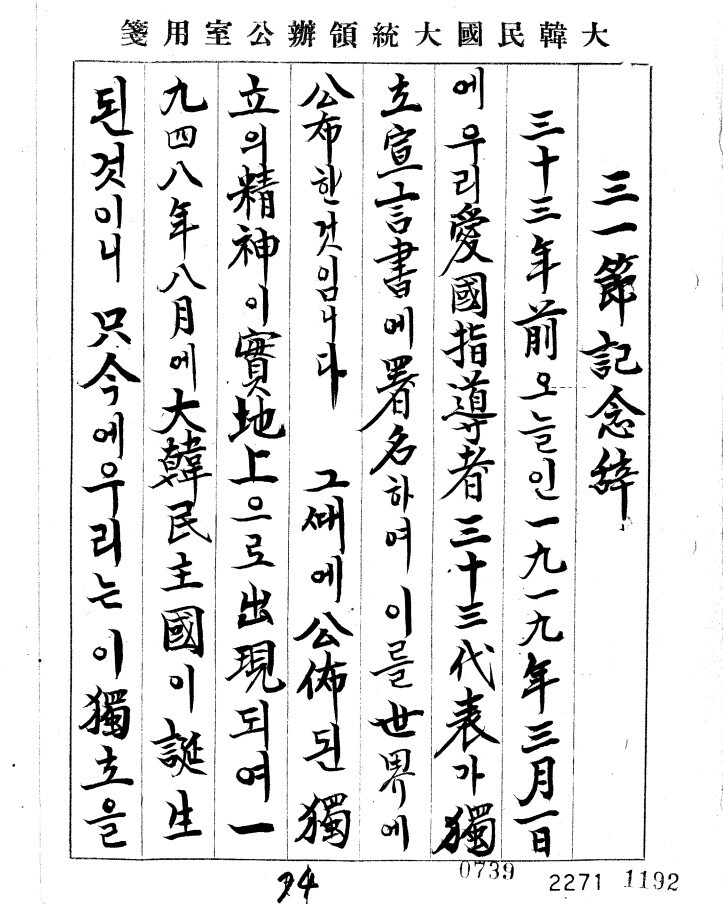 大韓民國大統領辦公室用箋
三一節記念辭
三十三年前오늘인一九一九年三月一日
에우리愛國指導者三十三代表가獨
立宣言書에署名하여이를世界에
公布한것임니다 그때에公佈된獨
立의精神이實地上으로出現되여一
九四八年八月에大韓民主國이誕生
된것이니 只今에우리는이獨立을
24
0739
2271 1192